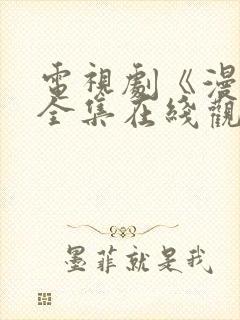 電視劇《漫
全集在綫觀
墨菲就是我